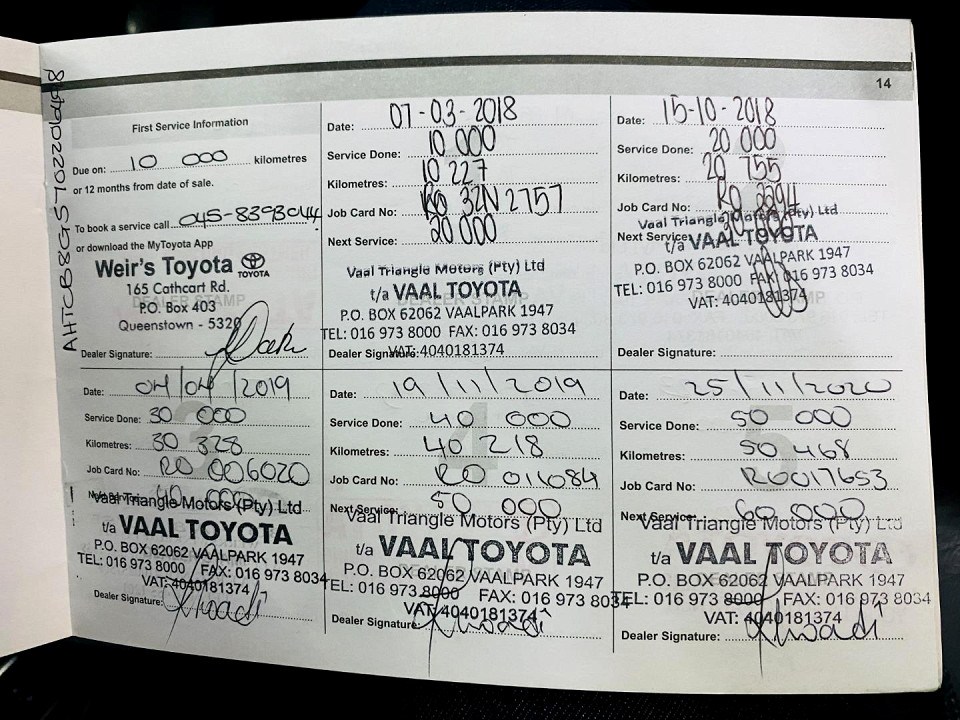 14
AHTCB8G5702206498
First Service Information
Due on: 10 000 kilometres
or 12 months from date of sale.
To book a service call 045-8393044
or download the MyToyota App
Weir's Toyota TOYOTA
165 Cathcart Rd.
P.O. Box 403
Queenstown - 5320
Dealer Signature:
Date: 07-03-2018
Service Done: 10 000
Kilometres: 10 227
Job Card No: RO 32N2757
Next Service: 20 000
Vaal Triangle Motors (Pty) Ltd
t/a VAAL TOYOTA
P.O. BOX 62062 VAALPARK 1947
TEL: 016 973 8000 FAX: 016 973 8034
VAT:4040181374
Dealer Signature:
Date: 15-10-2018
Service Done: 20 000
Kilometres: 20 755
Job Card No: RO
Next Service:
Vaal Triangle Motors (Pty) Ltd
t/a VAAL TOYOTA
P.O. BOX 62062 VAALPARK 1947
TEL: 016 973 8000 FAX: 016 973 8034
VAT: 4040181374
Dealer Signature:
Date: 04/04/2019
Service Done: 30 000
Kilometres: 30 328
Job Card No: RO 006020
Next Service: 40 000
Vaal Triangle Motors (Pty) Ltd
t/a VAAL TOYOTA
P.O. BOX 62062 VAALPARK 1947
TEL: 016 973 8000 FAX: 016 973 8034
VAT:4040181374
Dealer Signature:
Date: 19/11/2019
Service Done: 40 000
Kilometres: 40 218
Job Card No: RO 011084
Next Service: 50 000
Vaal Triangle Motors (Pty) Ltd
t/a VAAL TOYOTA
P.O. BOX 62062 VAALPARK 1947
TEL: 016 973 8000 FAX: 016 973 8034
VAT:4040181374
Dealer Signature:
Date: 25/11/2020
Service Done: 50 000
Kilometres: 50 468
Job Card No: RO017653
Next Service: 60 000
Vaal Triangle Motors (Pty) Ltd
t/a VAAL TOYOTA
P.O. BOX 62062 VAALPARK 1947
TEL: 016 973 8000 FAX: 016 973 8034
VAT: 4040181374
Dealer Signature: